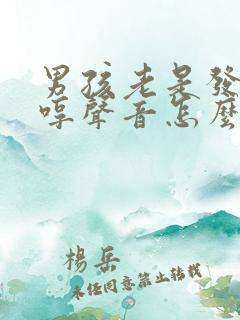 男孩老是發
啍聲音怎麼
楊岳
未任同意禁止转载